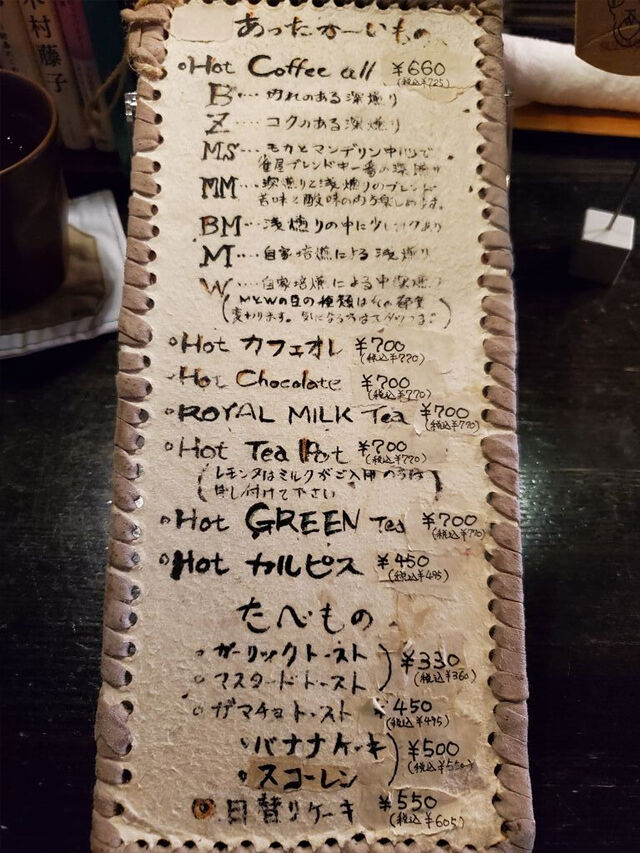 木村藤子
あったかーいもの
Hot Coffee all ¥660
(税込¥725)
B…切れのある深煎り
Z…コクのある深煎り
MS…モカとマンデリン中心で
当店ブレンド中一番の深煎り
MM…深煎りと浅煎りのブレンド
苦味と酸味の両方楽しめます。
BM…浅煎りの中に少しコクあり
M…自家焙煎による浅煎り
W…自家焙煎による中深煎り
(MとWの豆の種類はその都度
変わります。
Hot カフェオレ ¥700
(税込¥770)
Hot Chocolate ¥700
(税込¥770)
ROYAL MILK Tea ¥700
(税込¥770)
Hot Tea Pot ¥700
(税込¥770)
(レモン又はミルクがご入用の方は
申し付けて下さい)
Hot GREEN Tea ¥700
(税込¥770)
Hot カルピス ¥450
(税込¥495)
たべもの
ガーリックトースト
マスタードトースト
¥330
(税込¥360)
ガマチョトースト ¥450
(税込¥495)
バナナケーキ
スコーレン
¥500
(税込¥550)
日替りケーキ ¥550
(税込¥605)